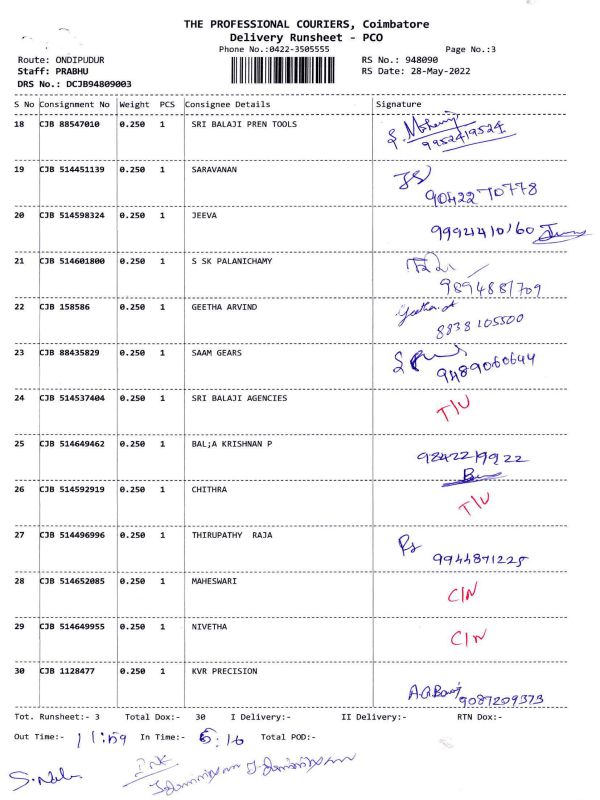 THE PROFESSIONAL COURIERS, Coimbatore
Delivery Runsheet - PCO
Phone No.:0422-3505555 Page No.:3
Route: ONDIPUDUR RS No.: 948090
Staff: PRABHU RS Date: 28-May-2022
DRS No.: DCJB94809003
S No Consignment No Weight PCS Consignee Details Signature
18 CJB 88547010 0.250 1 SRI BALAJI PREN TOOLS
9952419524
19 CJB 514451139 0.250 1 SARAVANAN
9042270778
20 CJB 514598324 0.250 1 JEEVA
9994410160
21 CJB 514601800 0.250 1 S SK PALANICHAMY
9894881709
22 CJB 158586 0.250 1 GEETHA ARVIND
8838105500
23 CJB 88435829 0.250 1 SAAM GEARS
9489060644
24 CJB 514537404 0.250 1 SRI BALAJI AGENCIES T/U
25 CJB 514649462 0.250 1 BAL;A KRISHNAN P
9842219922
26 CJB 514592919 0.250 1 CHITHRA T/U
27 CJB 514496996 0.250 1 THIRUPATHY RAJA
9944871225
28 CJB 514652085 0.250 1 MAHESWARI C/N
29 CJB 514649955 0.250 1 NIVETHA C/N
30 CJB 1128477 0.250 1 KVR PRECISION
9087209373
Tot. Runsheet:- 3 Total Dox:- 30 I Delivery:- II Delivery:- RTN Dox:-
Out Time:- 11:59 In Time:- 5:16 Total POD:-